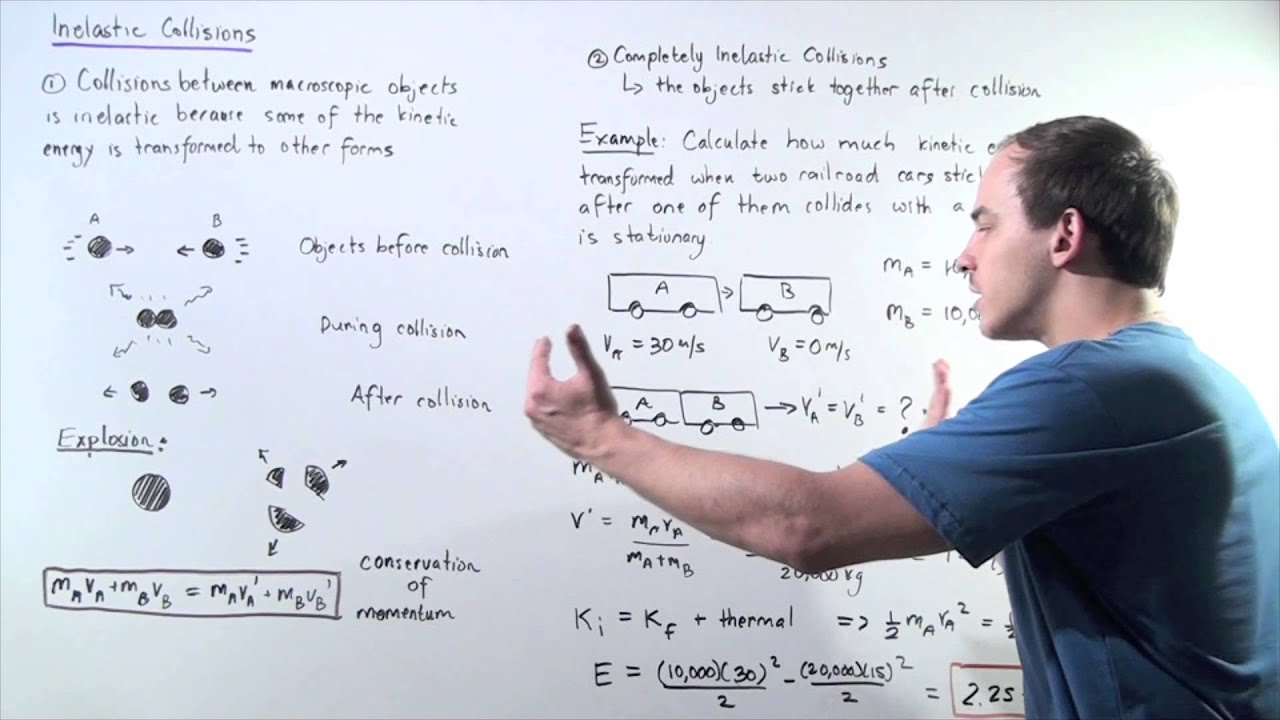 Inelastic Collisions
① Collisions between macroscopic objects
is inelactic because some of the kinetic
energy is transformed to other forms
A B
Objects before collision
During collision
After collision
Explosion:
m_A v_A + m_B v_B = m_A v_A' + m_B v_B'
conservation
of
momentum
② Completely Inelastic Collisions
↳ the objects stick together after collision
Example: Calculate how much kinetic
transformed when two railroad cars
after one of them collides with a
is stationary.
A B
m_A =
m_B = 10,0
V_A = 30 m/s V_B = 0 m/s
A B → V_A' = V_B' = ?
V' = m_A v_A
m_A + m_B
20,000 kg
K_i = K_f + thermal => ½ m_A v_A² =
E = (10,000)(30)²/2 - (20,000)(15)²/2 = 2.25